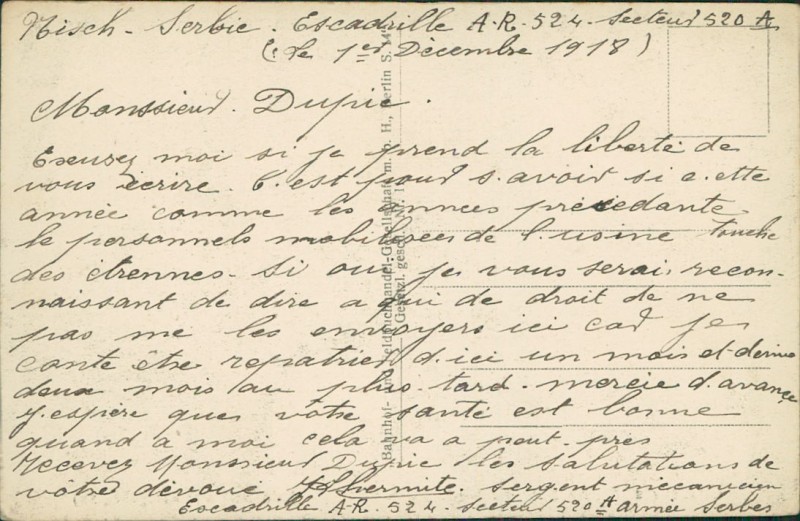 Nisch - Serbie. Escadrille A.R. 524. Secteur 520 A
(Le 1er Décembre 1918)
Monssieur. Dupic.
Exeurez moi si je prend la liberté de
vous écrire. C.est pour s.avoir si c.ette
année comme les annees précedante
le personnels mobilisees de l.usine touche
des étrennes. Si oui je vous serais recon-
naissant de dire a qui de droit de ne
pas me les envoyers ici car je
conte être repatrier d.ici un mois et demie
deux mois au plus tard. mercie d.avance
J.espère que votre santé est bonne
quand a moi cela va a peut près
Recevez Monssieur Dupic les salutations de
votre dévoué Lhermite. sergent mécanicien
Escadrille A.R. 524. secteur 520 A armée Serbes
Bahnhof- und Feldbuchhandel-Gesellschaft m. b. H., Berlin S. 14
Gesetzl. gesch.